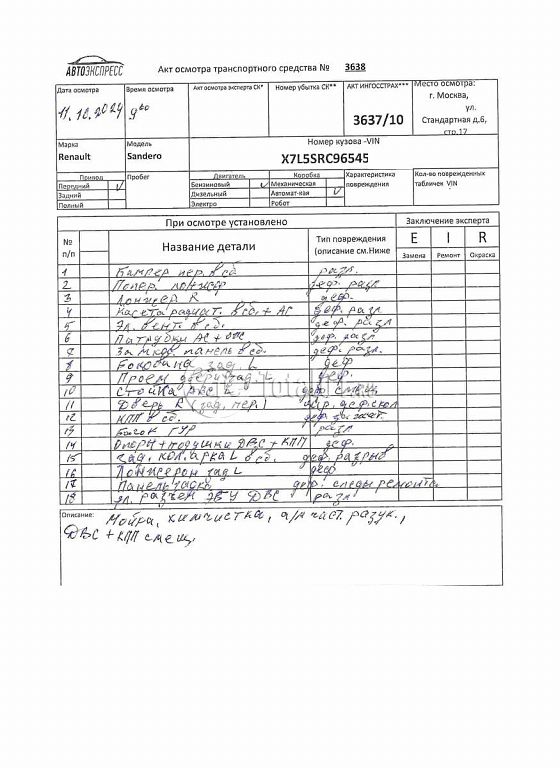 АВТОЭКСПРЕСС
Акт осмотра транспортного средства № 3638
Дата осмотра
Время осмотра
Акт осмотра эксперта СК*
Номер убытка СК**
АКТ ИНГОССТРАХ***
Место осмотра:
11.10.2024
9 00
3637/10
г. Москва,
ул.
Стандартная д.6,
стр.17
Марка
Модель
Номер кузова -VIN
Renault
Sandero
X7L5SRC96545
Привод
Пробег
Двигатель
Коробка
Характеристика повреждения
Кол-во поврежденных табличек VIN
Передний V
Бензиновый V
Механическая
Задний
Дизельный
Автомат-кая V
Полный
Электро
Робот
При осмотре установлено
Заключение эксперта
№ п/п
Название детали
Тип повреждения (описание см.Ниже
E I R
Замена Ремонт Окраска
1 Бампер пер. в сб разл.
2 Попер лонжер деф. разл
3 Лонжер R деф.
4 Касета радиат. в сб. + АС деф. разл
5 Эл. вент. в сб. деф. разл
6 Патрубки АС + ОЖ деф. разл
7 панель в сб. деф. разл.
8 Боковина зад. L деф
9 Проем двери зад L деф.
10 Стойка L смещ.
11 Дверь R (зад, пер.) деф. скол
12 КПП в сб. деф.
13 Бачок ГУР разл
14 Опоры + подушки ДВС + КПП деф.
15 Зад. кол. арка L в сб. деф. разрыв
16 Лонжерон зад L деф
17 Панель деф. следы ремонта
18 Эл. разъем ЭБУ ДВС разл
Описание:
Мойка, химчистка, а/м част. разук.,
ДВС + КПП смещ.